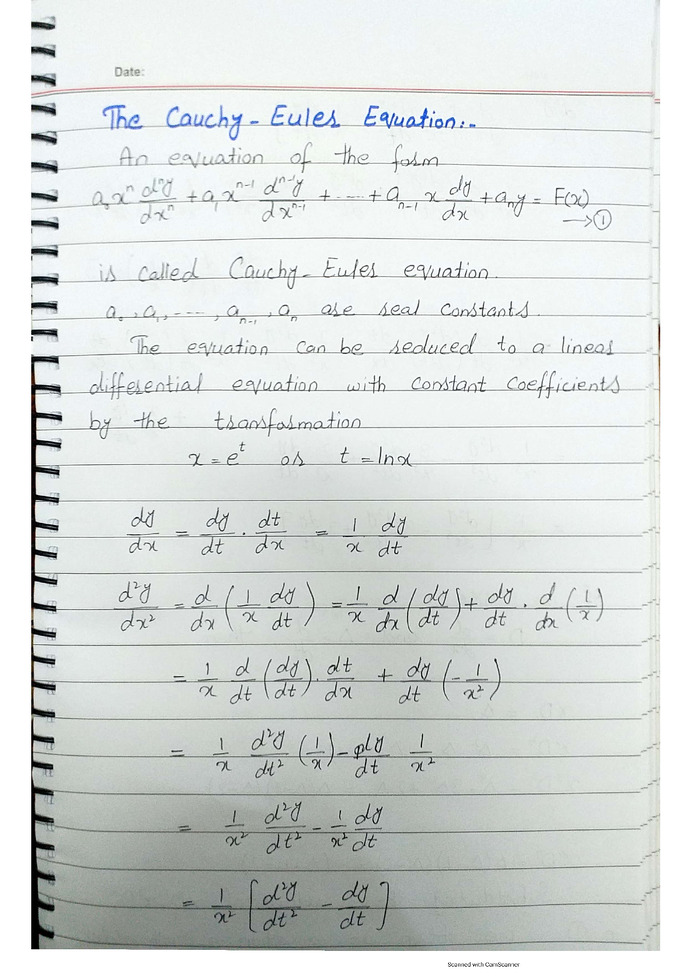 Date:
The Cauchy-Euler Equation:-
An equation of the form
a₀xⁿ dⁿy/dxⁿ + a₁xⁿ⁻¹ dⁿ⁻¹y/dxⁿ⁻¹ + ---- + aₙ₋₁ x dy/dx + aₙy = F(x) → ①
is called Cauchy-Euler equation.
a₀, a₁, ----, aₙ₋₁, aₙ are real constants.
The equation can be reduced to a linear
differential equation with constant coefficients
by the transformation
x = eᵗ or t = lnx
dy/dx = dy/dt · dt/dx = 1/x dy/dt
d²y/dx² = d/dx (1/x dy/dt) = 1/x d/dx (dy/dt) + dy/dt · d/dx (1/x)
= 1/x d/dt (dy/dt) · dt/dx + dy/dt (-1/x²)
= 1/x d²y/dt² (1/x) - dy/dt 1/x²
= 1/x² d²y/dt² - 1/x² dy/dt
= 1/x² [d²y/dt² - dy/dt]
Scanned with CamScanner